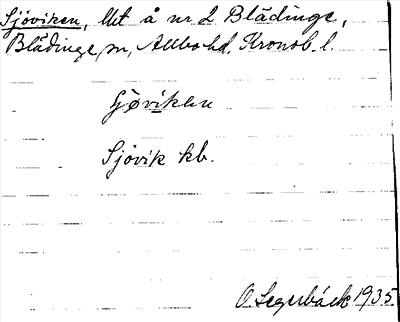 Sjöviken, lht å nr 2 Blädinge,
Blädinge sn, Allbo hd, Kronob. l.
Sjövik kb.
O. Segerbäck 1935.